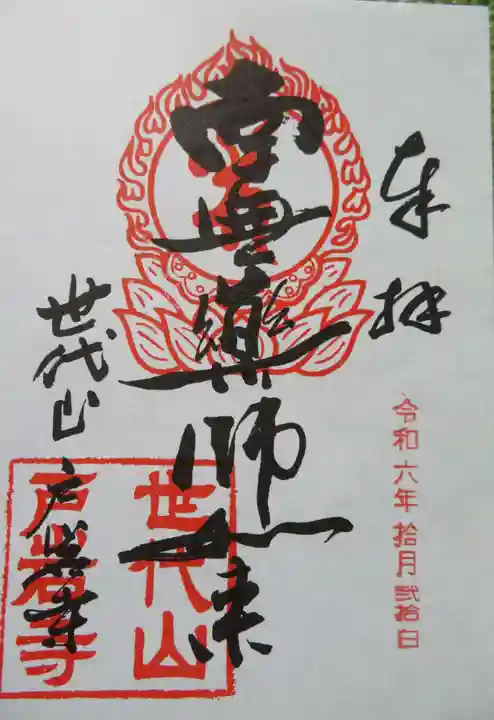 奉拝
令和六年拾月弐拾日
薬師如来
世代山
戸岩寺
世代山戸岩寺